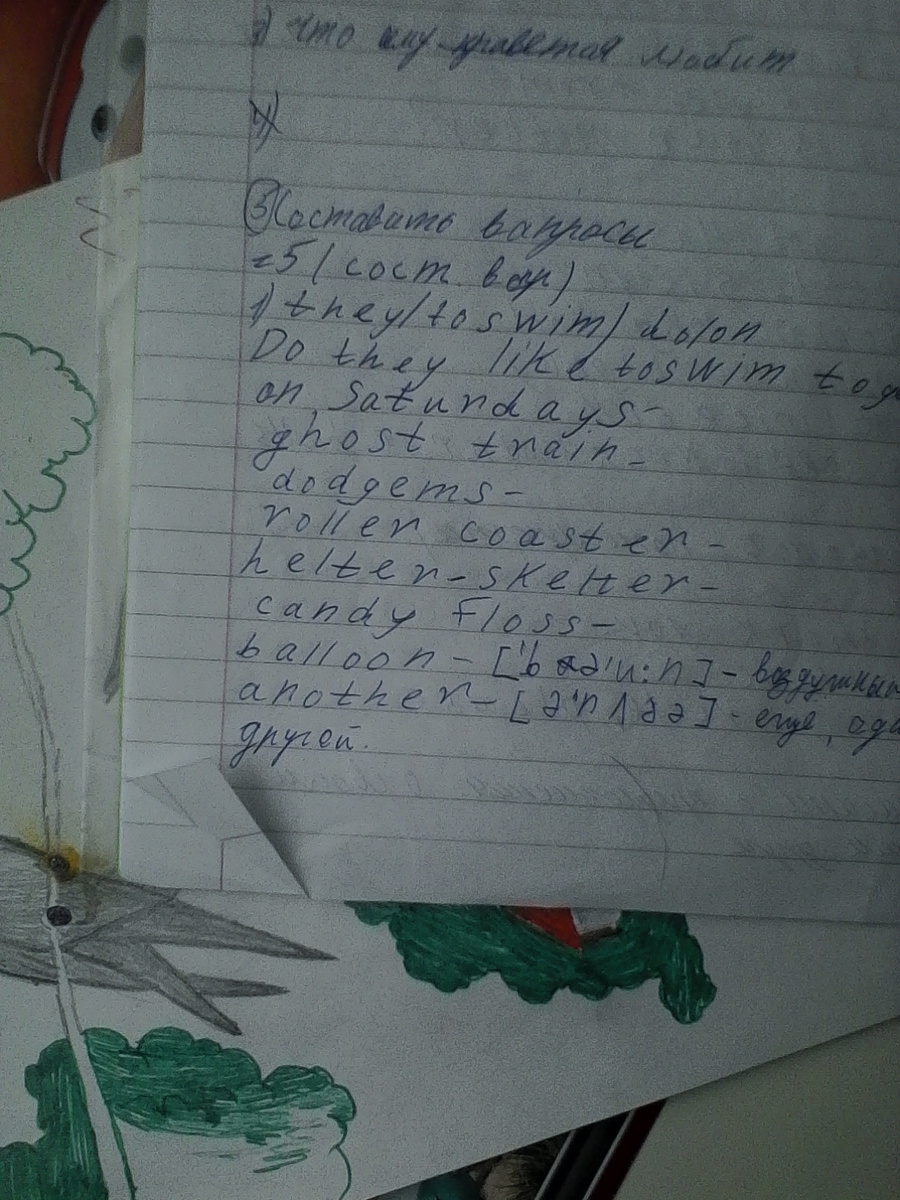 3) что ему нравится любит
4)
③ Составить вапросы
=5 (сост. вор)
1) they/to swim/
Do they like to swim
on Saturdays-
ghost train-
dodgems-
roller coaster-
helter-skelter-
candy floss-
balloon-[ - воздушный
another-[ə'nʌðə]- еще,
другой.